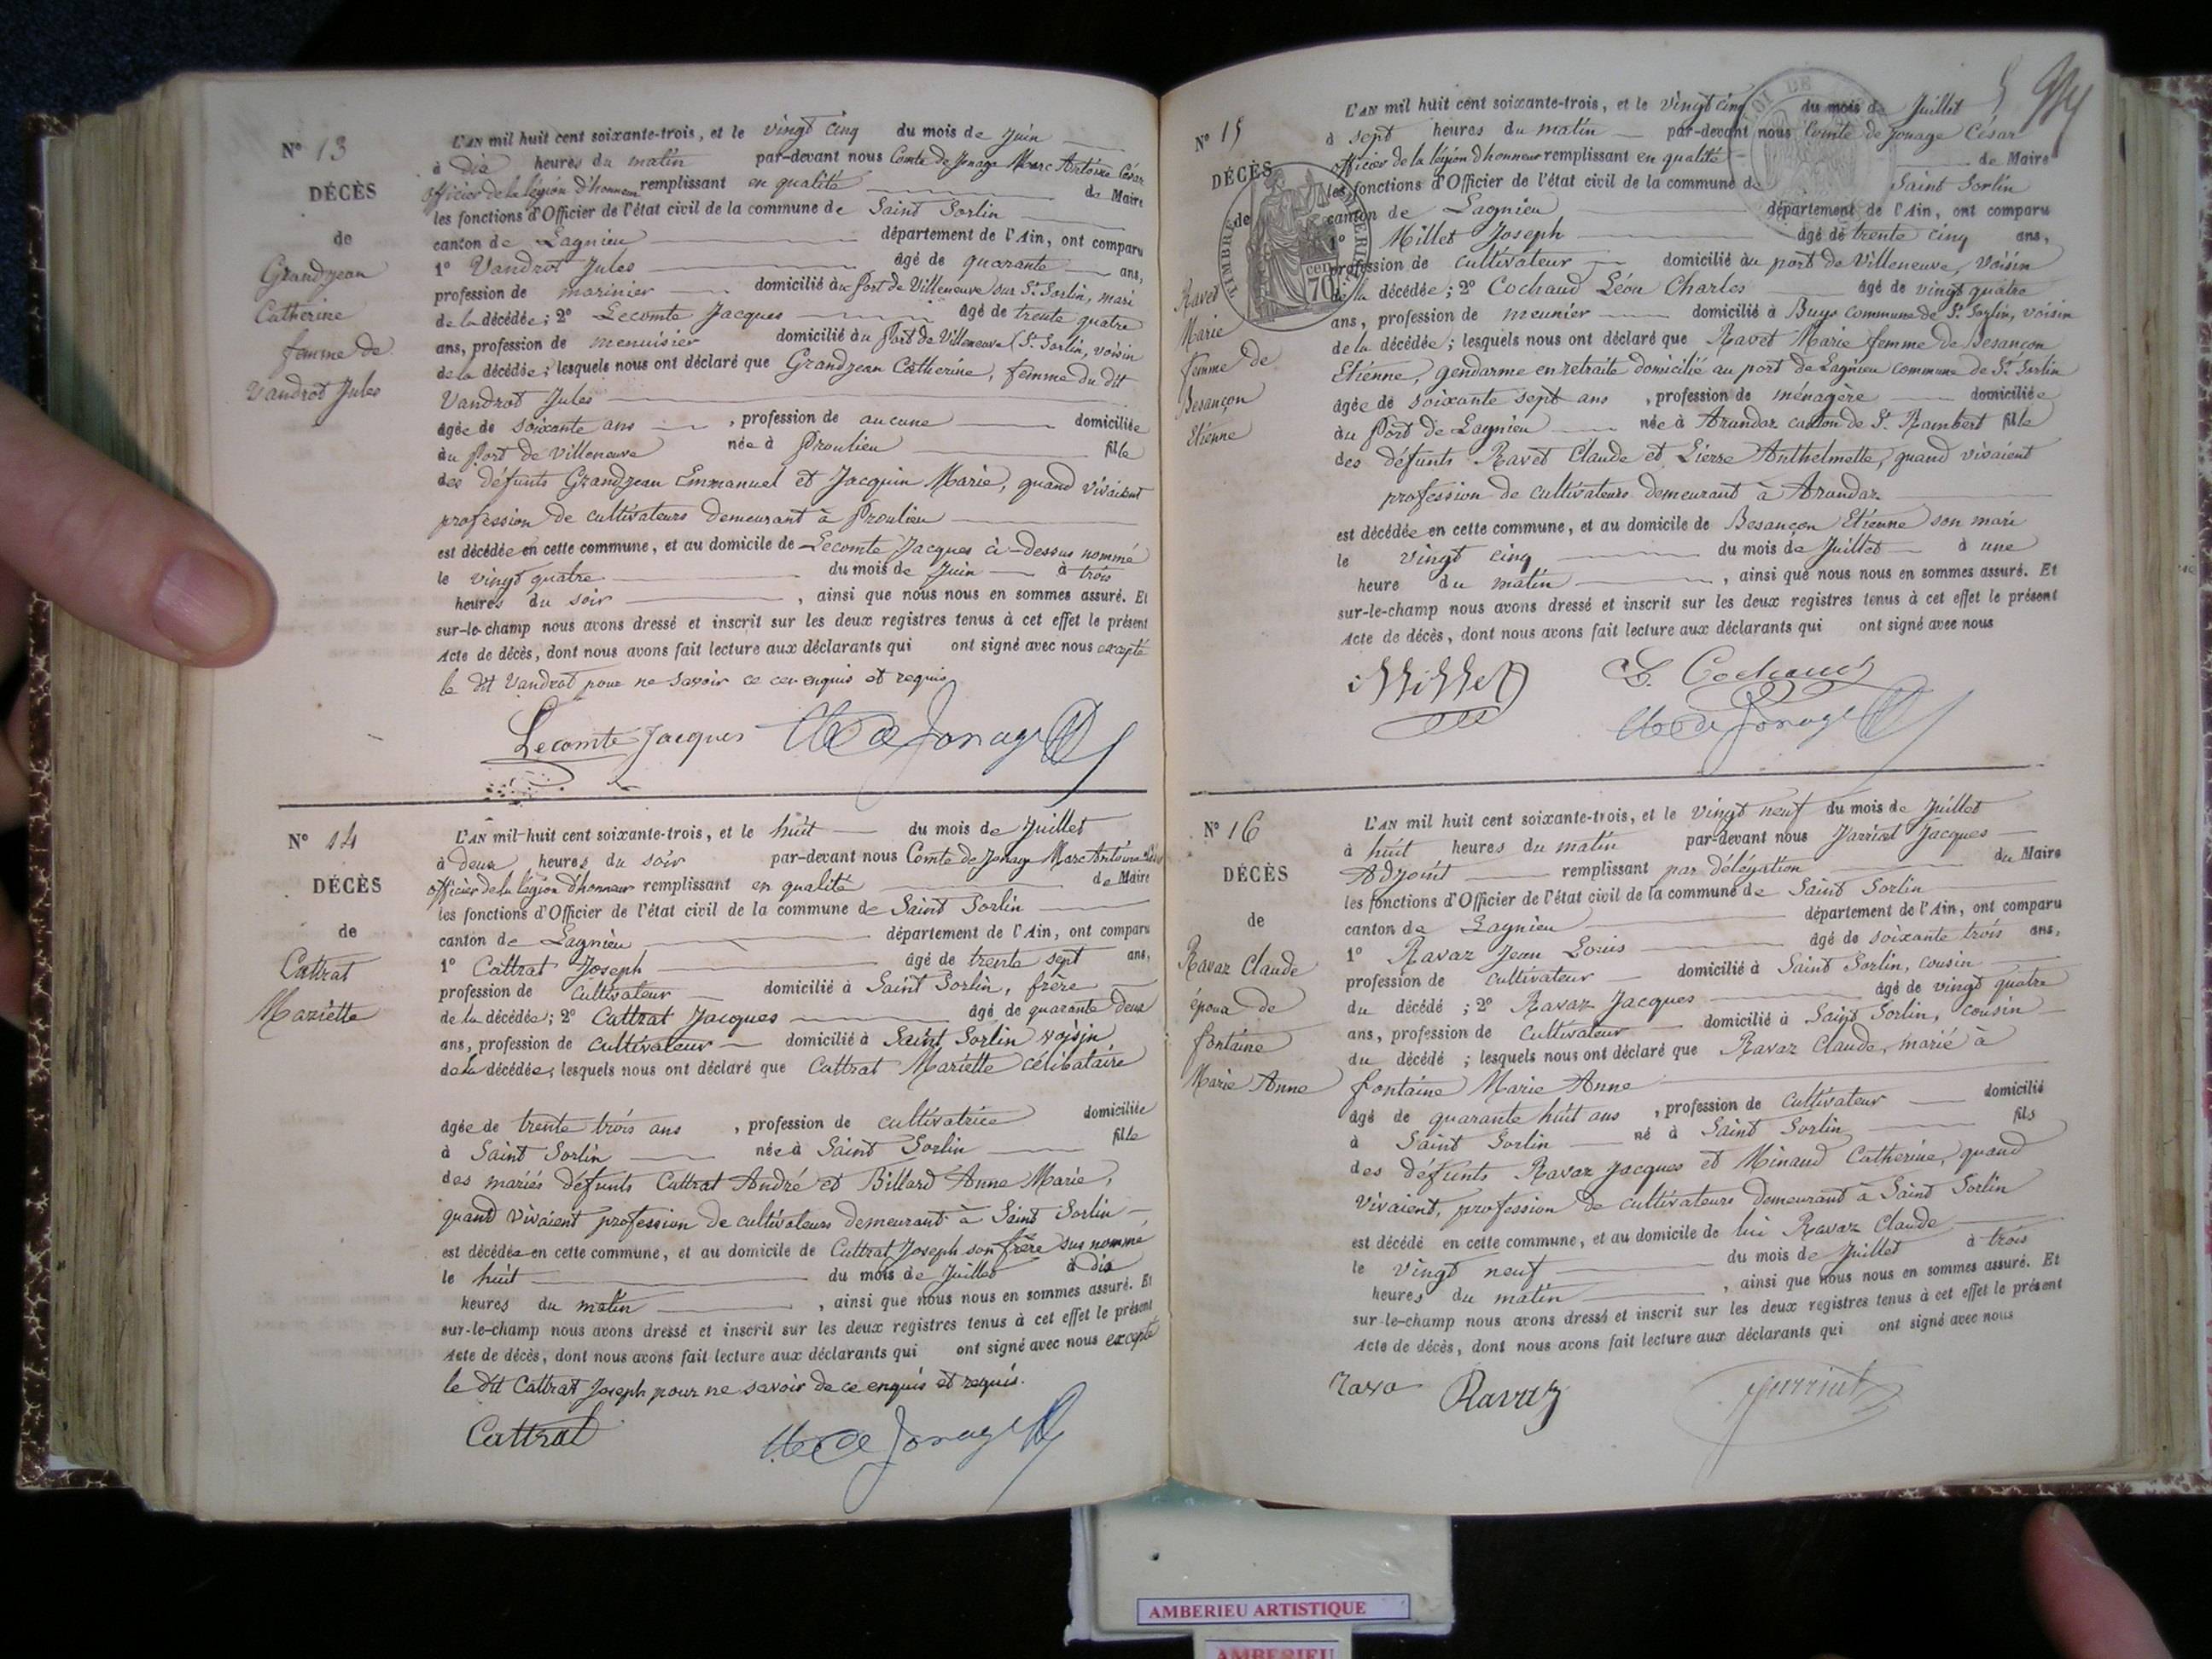 N° 13
DÉCÈS
de
Grandjean
Catherine
femme de
Vandrot Jules
L'AN mil huit cent soixante-trois, et le vingt cinq du mois de juin
à dix heures du matin par-devant nous Comte de Jonage Marc Antoine César
officier de la légion d'honneur remplissant en qualité de Maire
les fonctions d'Officier de l'état civil de la commune de Saint Sorlin
canton de Lagnieu département de l'Ain, ont comparu
1° Vandrot Jules âgé de quarante ans,
profession de marinier domicilié au port de Villeneuve sur St Sorlin, mari
de la décédée; 2° Lecomte Jacques âgé de trente quatre
ans, profession de menuisier domicilié au Port de Villeneuve (St Sorlin, voisin
de la décédée; lesquels nous ont déclaré que Grandjean Catherine, femme du dit
Vandrot Jules
âgée de soixante ans, profession de aucune domiciliée
au Port de Villeneuve née à Proulieu fille
des défunts Grandjean Emmanuel et Jacquin Marie, quand vivaient
profession de cultivateurs demeurant à Proulieu
est décédée en cette commune, et au domicile de Lecomte Jacques ci-dessus nommé
le vingt quatre du mois de Juin à trois
heures du soir, ainsi que nous nous en sommes assuré. Et
sur-le-champ nous avons dressé et inscrit sur les deux registres tenus à cet effet le présent
Acte de décès, dont nous avons fait lecture aux déclarants qui ont signé avec nous excepté
le dit Vandrot pour ne savoir ce enquis et requis
Lecomte Jacques Cte de Jonage
N° 14
DÉCÈS
de
Cattrat
Mariette
L'AN mil huit cent soixante-trois, et le huit du mois de Juillet
à deux heures du soir par-devant nous Comte de Jonage Marc Antoine
officier de la légion d'honneur remplissant en qualité de Maire
les fonctions d'Officier de l'état civil de la commune de Saint Sorlin
canton de Lagnieu département de l'Ain, ont comparu
1° Cattrat Joseph âgé de trente sept ans,
profession de cultivateur domicilié à Saint Sorlin, frère
de la décédée; 2° Cattrat Jacques âgé de quarante deux
ans, profession de cultivateur domicilié à Saint Sorlin voisin
de la décédée, lesquels nous ont déclaré que Cattrat Mariette célibataire
âgée de trente trois ans, profession de cultivatrice domiciliée
à Saint Sorlin née à Saint Sorlin fille
des mariés défunts Cattrat André et Billard Anne Marie,
quand vivaient profession de cultivateurs demeurant à Saint Sorlin
est décédée en cette commune, et au domicile de Cattrat Joseph son frère sus nommé
le huit du mois de Juillet à dix
heures du matin, ainsi que nous nous en sommes assuré. Et
sur-le-champ nous avons dressé et inscrit sur les deux registres tenus à cet effet le présent
Acte de décès, dont nous avons fait lecture aux déclarants qui ont signé avec nous excepté
le dit Cattrat Joseph pour ne savoir de ce enquis et requis.
Cattrat Cte de Jonage
N° 15
DÉCÈS
de
Ravet
Marie
femme de
Besançon
Etienne
TIMBRE IMPÉRIAL
70 cen
L'AN mil huit cent soixante-trois, et le vingt cinq du mois de Juillet
à sept heures du matin par-devant nous Comte de Jonage César
officier de la légion d'honneur remplissant en qualité de Maire
les fonctions d'Officier de l'état civil de la commune de Saint Sorlin
canton de Lagnieu département de l'Ain, ont comparu
1° Millet Joseph âgé de trente cinq ans,
profession de cultivateur domicilié au port de Villeneuve, voisin
de la décédée; 2° Cochaud Léon Charles âgé de vingt quatre
ans, profession de meunier domicilié à Buys commune de St Sorlin, voisin
de la décédée; lesquels nous ont déclaré que Ravet Marie femme de Besançon
Etienne, gendarme en retraite domicilié au port de Lagnieu commune de St Sorlin
âgée de soixante sept ans, profession de ménagère domiciliée
au Port de Lagnieu née à Arandaz canton de St Rambert fille
des défunts Ravet Claude et Lierre Anthelmette, quand vivaient
profession de cultivateurs demeurant à Arandaz
est décédée en cette commune, et au domicile de Besançon Etienne son mari
le vingt cinq du mois de Juillet à une
heure du matin, ainsi que nous nous en sommes assuré. Et
sur-le-champ nous avons dressé et inscrit sur les deux registres tenus à cet effet le présent
Acte de décès, dont nous avons fait lecture aux déclarants qui ont signé avec nous
Millet L. Cochaud
Cte de Jonage
N° 16
DÉCÈS
de
Ravaz Claude
époux de
fontaine
Marie Anne
L'AN mil huit cent soixante-trois, et le vingt neuf du mois de Juillet
à huit heures du matin par-devant nous Jarriat Jacques
Adjoint remplissant par délégation du Maire
les fonctions d'Officier de l'état civil de la commune de Saint Sorlin
canton de Lagnieu département de l'Ain, ont comparu
1° Ravaz Jean Louis âgé de soixante trois ans,
profession de cultivateur domicilié à Saint Sorlin, cousin
du décédé; 2° Ravaz Jacques âgé de vingt quatre
ans, profession de cultivateur domicilié à Saint Sorlin, cousin
du décédé; lesquels nous ont déclaré que Ravaz Claude, marié à
fontaine Marie Anne
âgé de quarante huit ans, profession de cultivateur domicilié
à Saint Sorlin né à Saint Sorlin fils
des défunts Ravaz Jacques et Minaud Catherine, quand
vivaient, profession de cultivateurs demeurant à Saint Sorlin
est décédé en cette commune, et au domicile de lui Ravaz Claude
le vingt neuf du mois de Juillet à trois
heures du matin, ainsi que nous nous en sommes assuré. Et
sur-le-champ nous avons dressé et inscrit sur les deux registres tenus à cet effet le présent
Acte de décès, dont nous avons fait lecture aux déclarants qui ont signé avec nous
Ravaz Jarriat
AMBERIEU ARTISTIQUE
AMBERIEU